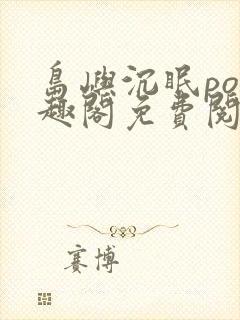 島嶼沉眠po
趣閣免費閱
賽博